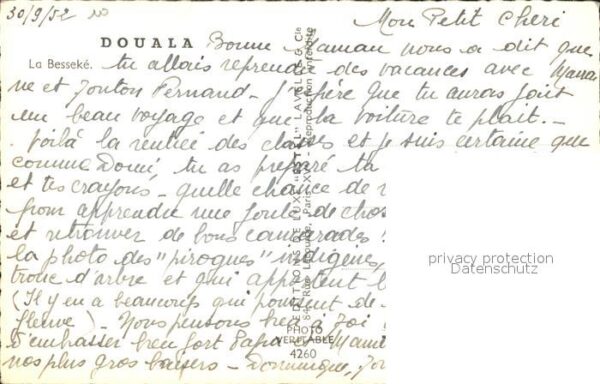 30/9/52
Mon Petit Chéri
DOUALA Bonne Maman nous a dit que
La Besseké. tu allais reprendre des vacances avec
ne et Tonton Fernand - J'espère que tu auras fait
un beau voyage et que la voiture te plait. -
Voilà la rentrée des classes et je suis certaine que
comme Domi, tu as préparé ta
et tes crayons - quelle chance de
pour apprendre une foule de chos
et retrouver de bons camarades !
la photo des "pirogues" indigène
tronc d'arbre et qui apportent l
(Il y en a beaucoup qui de
fleuve) - Nous pensons bien à Toi !
D'embrasser bien fort Papa
nos plus gros baisers - Dominique,
EDITIONS DE LUXE "ESTEL" LAVELLE & Cie
Paris-X - Reproduction Interdite
PHOTO
VERITABLE
4260
privacy protection
Datenschutz